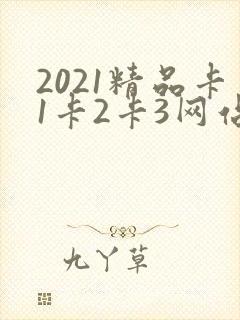 2021精品卡
1卡2卡3网
九丫草